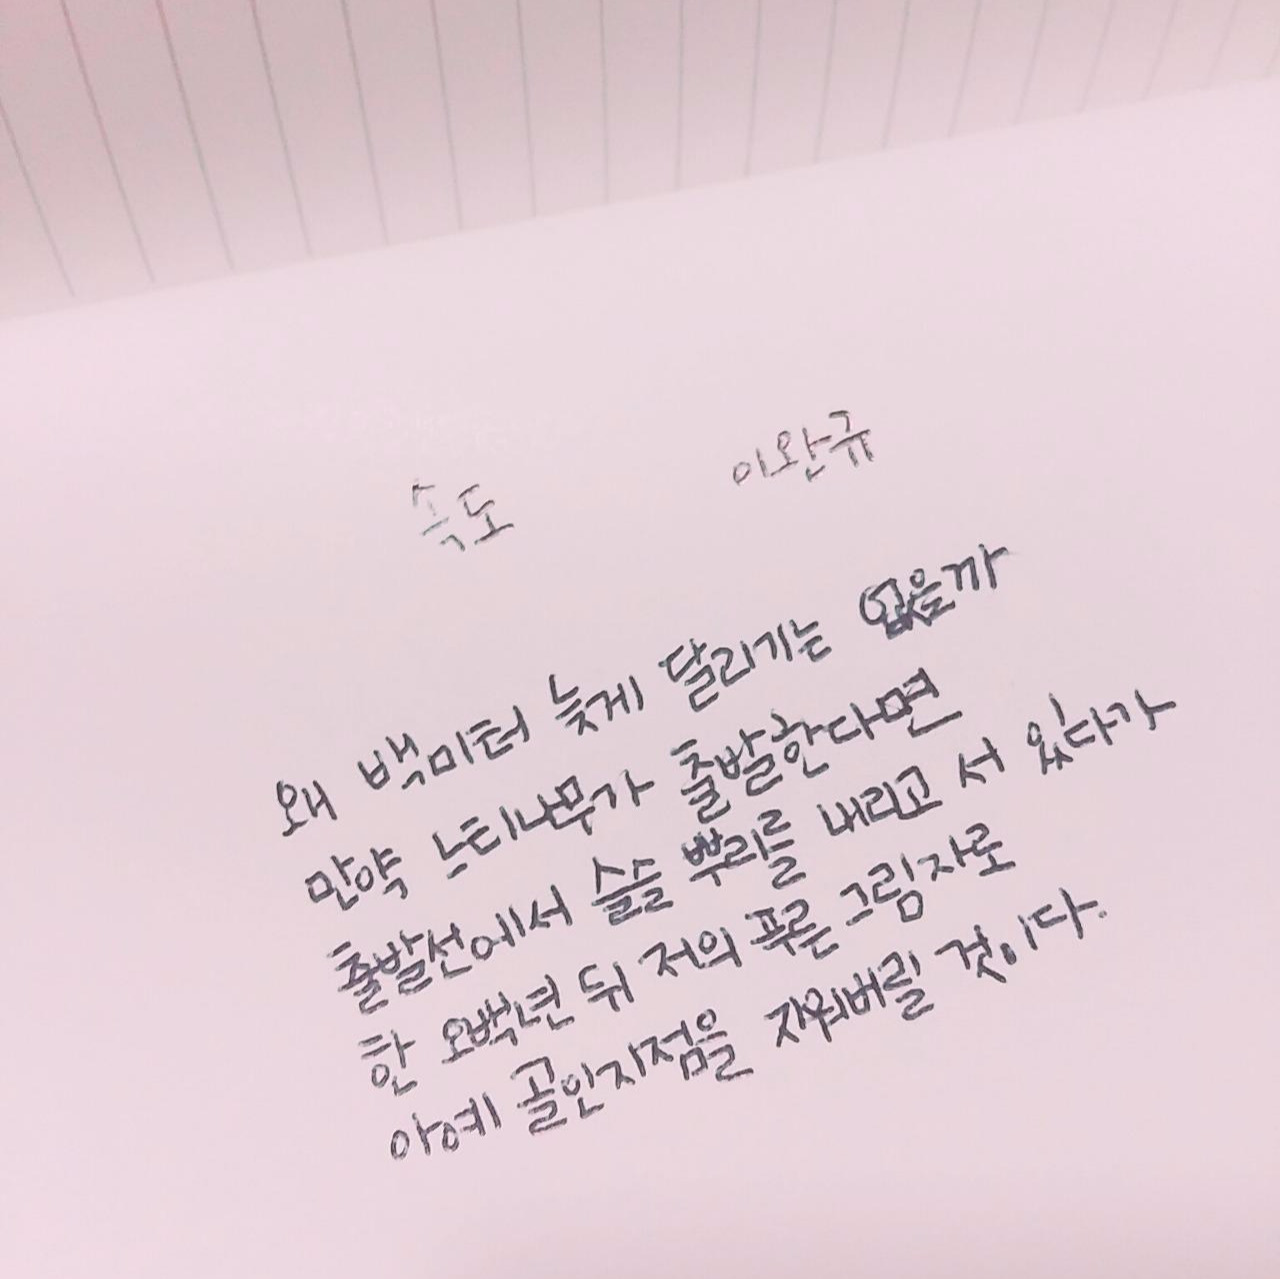 속도 이완규
왜 백미터 늦게 달리기는 없을까
만약 느티나무가 출발한다면
출발선에서 슬슬 뿌리를 내리고 서 있다가
한 오백년 뒤 저의 푸른 그림자로
아예 골인지점을 지워버릴 것이다.